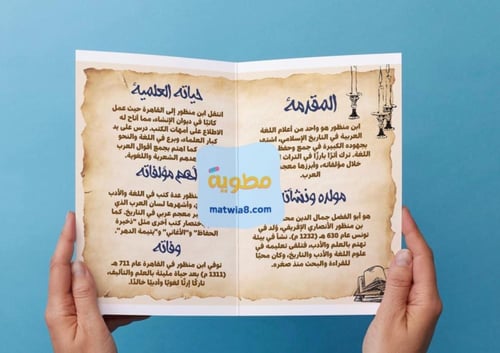 المقدمة
ابن منظور هو واحد من أعلام اللغة
العربية في التاريخ الإسلامي، اشتهر
بجهوده الكبيرة في جمع وحفظ
اللغة، ترك أثرًا بارزًا في التراث
خلال مؤلفاته، وأبرزها
العرب.
مولده ونشأته
هو أبو الفضل جمال الدين
بن منظور الأنصاري الإفريقي، وُلد في
تونس عام 630 هـ (1232 م). نشأ في بيئة
تهتم بالعلم والأدب، فتلقى تعليمه في
علوم اللغة والأدب والتاريخ، وكان محبًا
للقراءة والبحث منذ صغره.
حياته العلمية
انتقل ابن منظور إلى القاهرة حيث عمل
كاتبًا في ديوان الإنشاء، مما أتاح له
الاطلاع على أمهات الكتب. درس على يد
كبار العلماء، وبرع في اللغة والنحو
كما اهتم بجمع أقوال العرب
الشعرية واللغوية.
مؤلفاته
منظور عدة كتب في اللغة والأدب
وأشهرها لسان العرب الذي
معجم عربي في التاريخ. كما
اختصار كتب أخرى مثل "ذخيرة
الحفاظ" و"الأغاني" و"يتيمة الدهر".
وفاته
توفي ابن منظور في القاهرة عام 711 هـ
(1311 م) بعد حياة مليئة بالعلم والتأليف،
تاركًا إرثًا لغويًا وأدبيًا خالدًا.
مطوية
matwia8.com